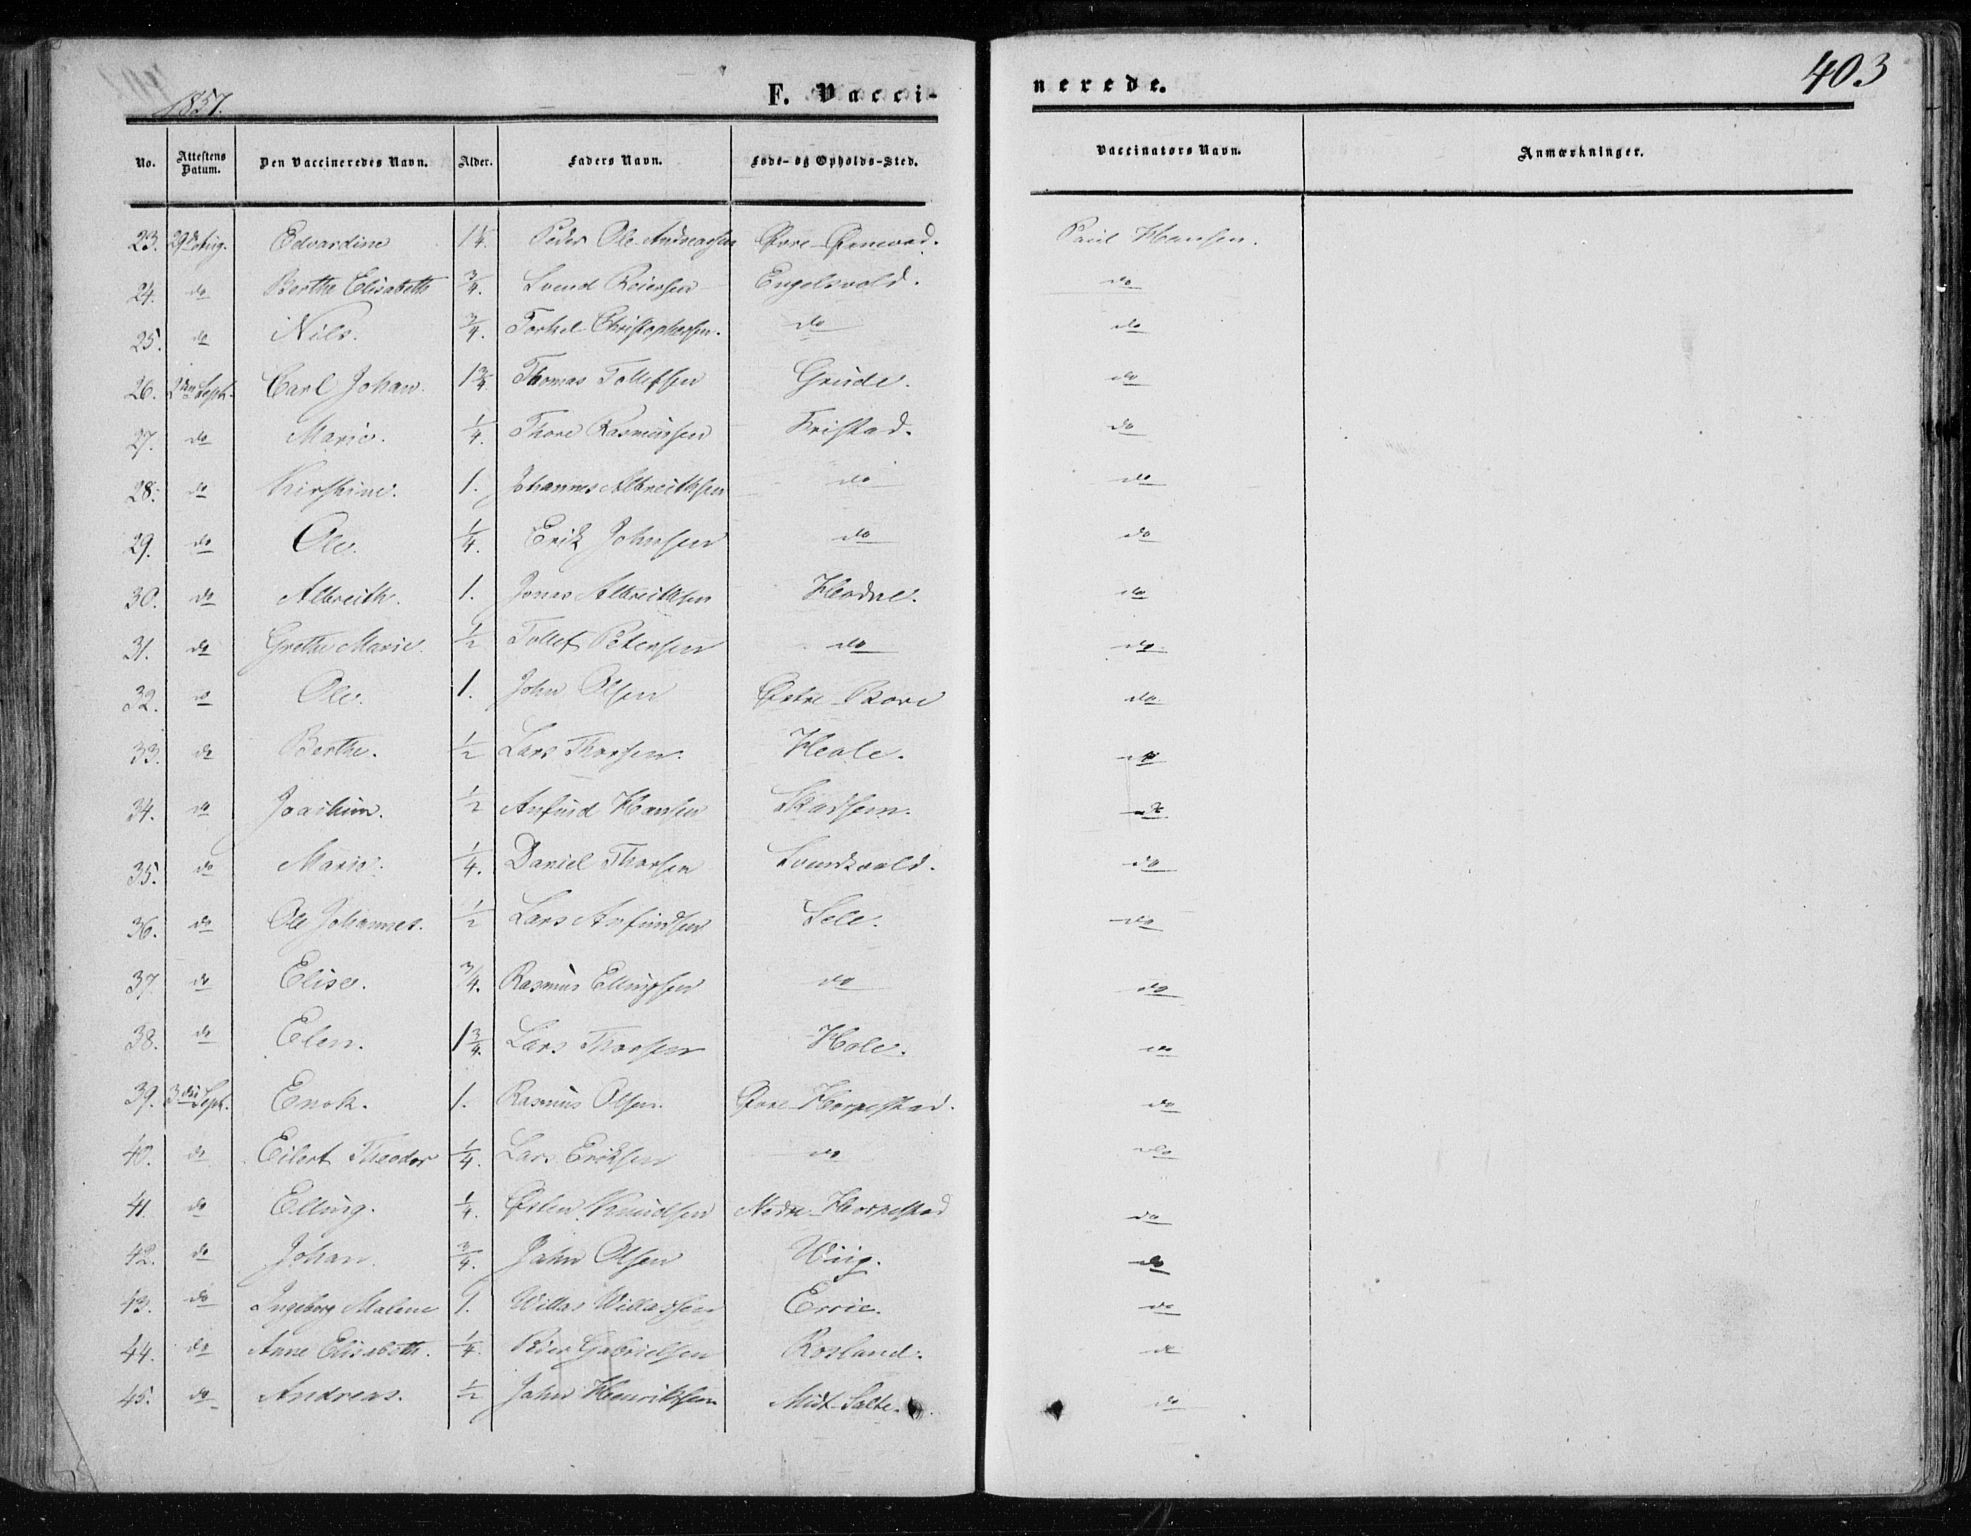 1857.
F. Vacci-
nerede.
403
No. | Attestens Datum. | Den Vaccineredes Navn. | Alder. | Faders Navn. | Føde- og Opholds-Sted. | Vaccinators Navn. | Anmærkninger.
23. | 29de Aug. | Edvardine | 1 1/4. | Peder Ole Andreassen | Øvre | Paul Hansen.
24. | do | Berthe Elisabeth | 3/4. | Svend Reiersen | Engelsvold. | do
25. | do | Nils. | 3/4. | Torkel Christophersen. | do | do
26. | 2den Septb. | Carl Johan. | 1 3/4. | Thomas Tollefsen | Grude. | do
27. | do | Marie. | 1/4. | Thore Rasmussen | Friestad. | do
28. | do | Kirstine. | 1. | Johannes Albreithsen | do | do
29. | do | Ole. | 1/4. | Erik Johnsen | do | do
30. | do | Albreith. | 1. | Jonas Albreithsen | Hodne. | do
31. | do | Grethe Marie. | 1/2 | Tollef Petersen | do | do
32. | do | Ole. | 1. | John Olsen | Østre Bore | do
33. | do | Berthe. | 1/2 | Lars Thorsen. | Hole. | do
34. | do | Joachim. | 1/2 | Anfind Hansen | Skadsem. | do
35. | do | Marie. | 1/4. | Daniel Thorsen | | do
36. | do | Ole Johannes. | 1/2 | Lars Anfindsen | Sele. | do
37. | do | Elise. | 3/4. | Rasmus Ellingsen | do | do
38. | do | Elen. | 1 3/4. | Lars Thorsen | Hole. | do
39. | 3die Septb. | Enok. | 1. | Rasmus Olsen. | Øvre Horpestad. | do
40. | do | Eilert Theodor | 1/4. | Lars Eriksen | do | do
41. | do | Elling. | 1/4. | Østen Knudsen | Nedre Horpestad | do
42. | do | Johan. | 3/4. | John Olsen | Wiig. | do
43. | do | Ingeborg Malene | 1. | Willas Willassen | Errie. | do
44. | do | Anne Elisabeth. | 1/4. | Peder Gabrielsen | Rosland. | do
45. | do | Andreas. | 1/2 | John Henriksen | Midt Salte. | do